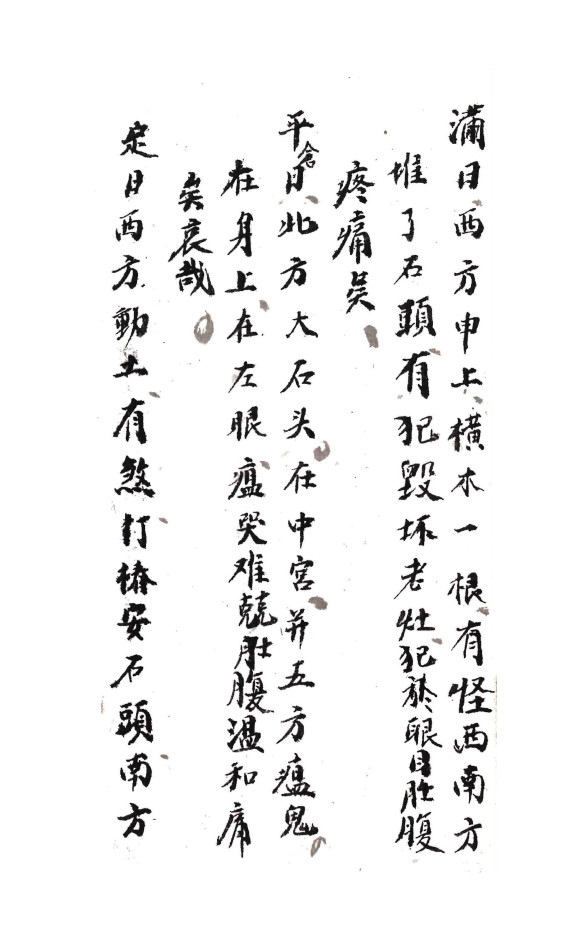 滿日西方申上橫木一根有怪西南方
堆了石頭有犯毀坏老灶犯於眼目肚腹
疼痛矣
平日北方大石头在中宮并五方瘟鬼
在身上在左眼瘟哭难兢肚腹温和痛
矣哀哉
定日西方動土有煞打樁安石頭南方